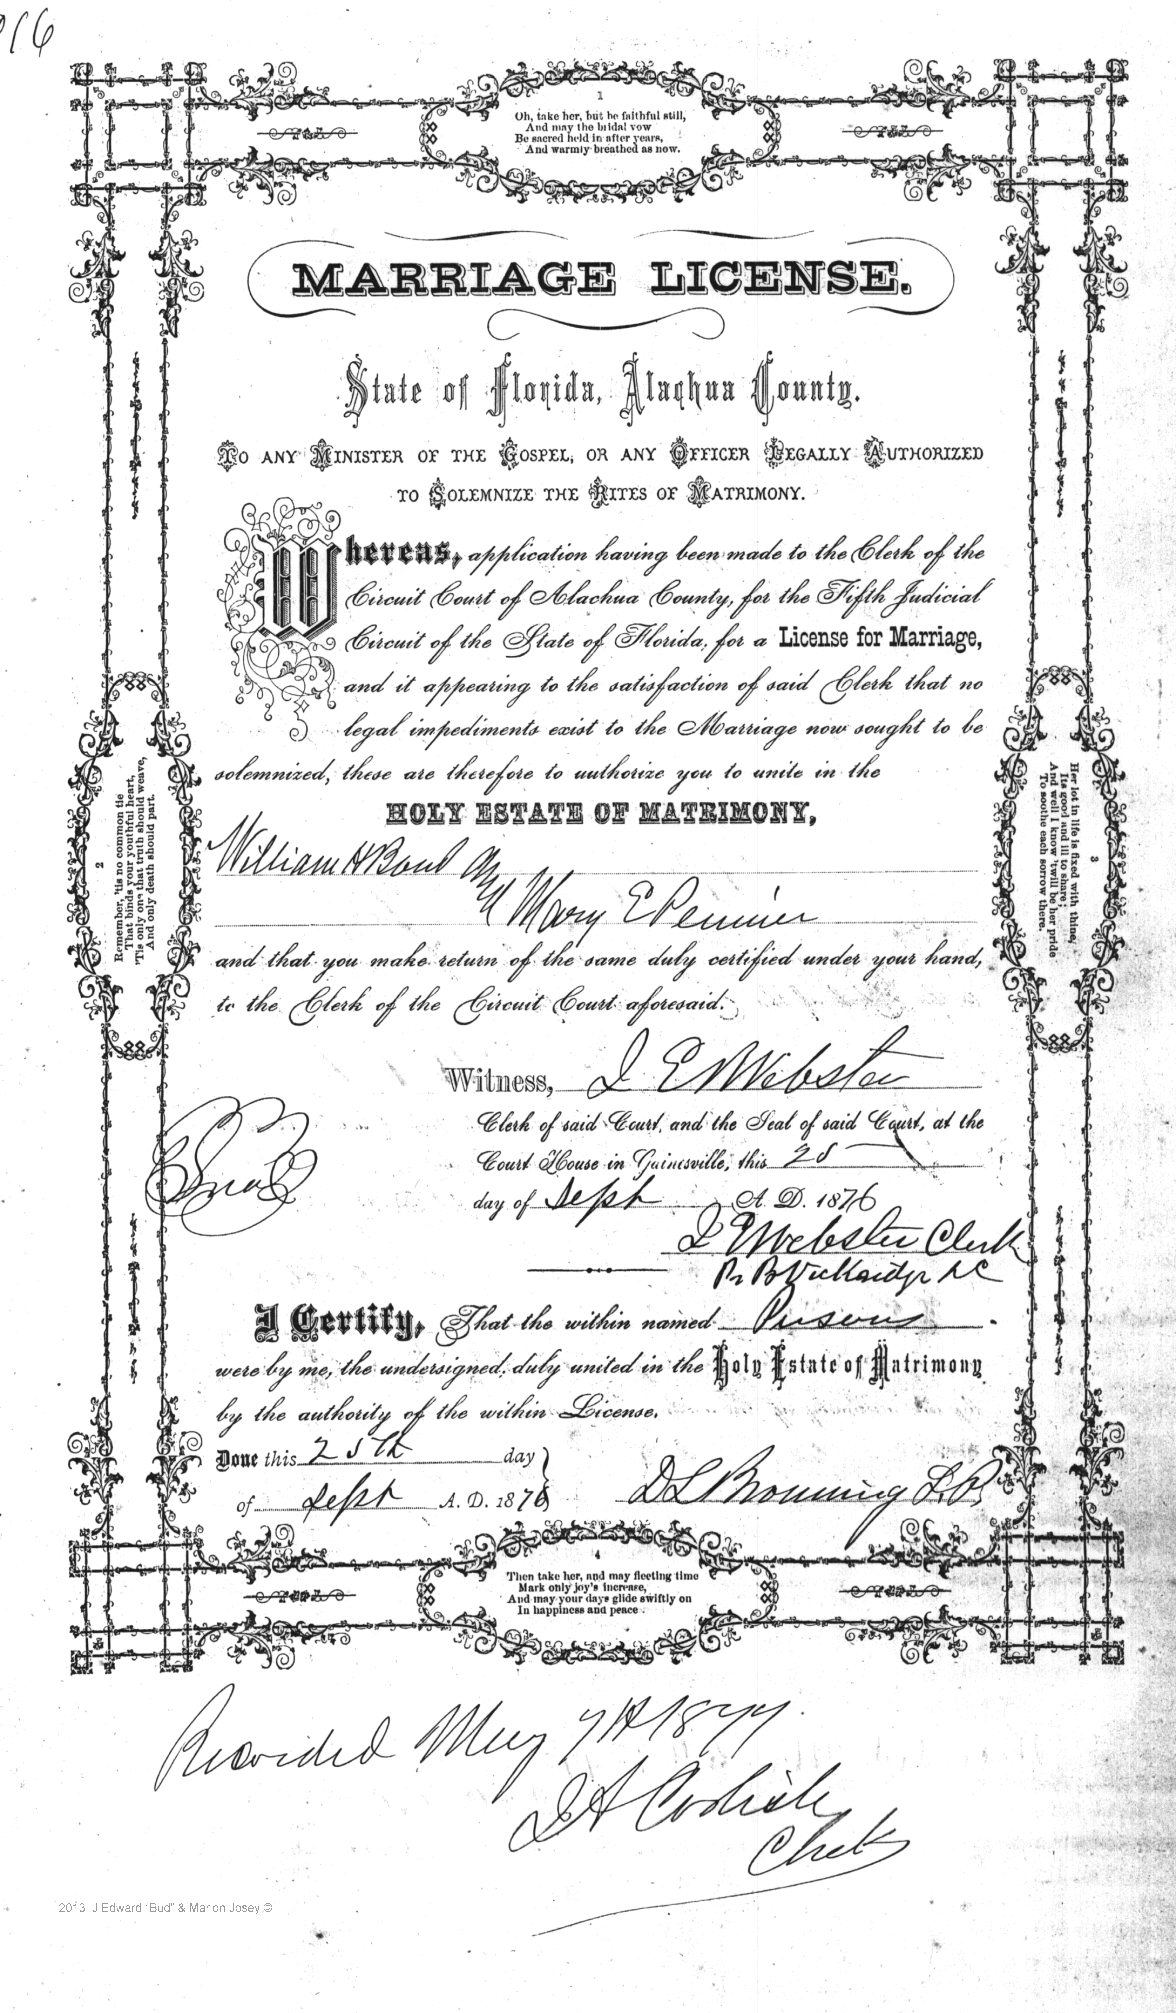 916
1
Oh, take her, but be faithful still,
And may the bridal vow
Be sacred held in after years,
And warmly breathed as now.
MARRIAGE LICENSE.
State of Florida, Alachua County.
TO ANY MINISTER OF THE GOSPEL, OR ANY OFFICER LEGALLY AUTHORIZED
TO SOLEMNIZE THE RITES OF MATRIMONY.
Whereas, application having been made to the Clerk of the
Circuit Court of Alachua County, for the Fifth Judicial
Circuit of the State of Florida, for a License for Marriage,
and it appearing to the satisfaction of said Clerk that no
legal impediments exist to the Marriage now sought to be
solemnized, these are therefore to authorize you to unite in the
HOLY ESTATE OF MATRIMONY,
William H
and Mary E
and that you make return of the same duly certified under your hand,
to the Clerk of the Circuit Court aforesaid.
2
Remember, 'tis no common tie
That binds your youthful heart,
'Tis only one that truth should weave,
And only death should part.
3
Her lot in life is fixed with thine,
Its good and ill to share;
And well I know 'twill be her pride
To soothe each sorrow there.
Witness, J E Webster
Clerk of said Court, and the Seal of said Court, at the
Court House in Gainesville, this 25
day of Sept A. D. 1876
J E Webster Clerk
DC
Seal
I Certify, That the within named Persons
were by me, the undersigned, duly united in the Holy Estate of Matrimony
by the authority of the within License.
Done this 25th day
of Sept A. D. 1876
D L Browning J.P.
Then take her, and may fleeting time
Mark only joy's increase,
And may your days glide swiftly on
In happiness and peace.
Recorded May 7th 1877
J A Carlisle
Clerk
2013 J Edward "Bud" & Marion Josey ©